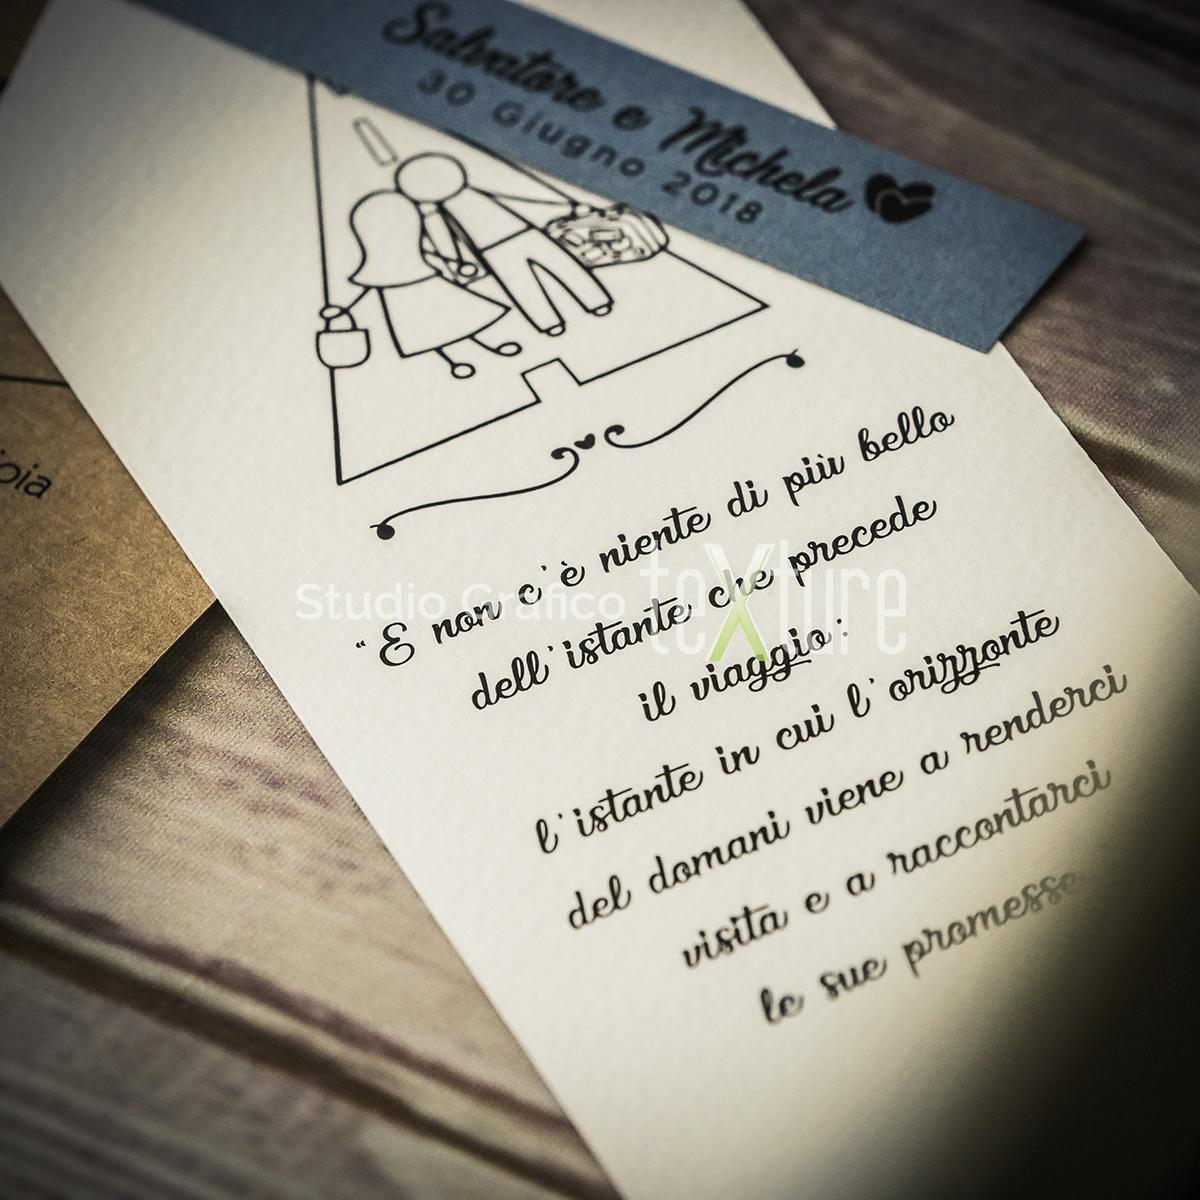 Salvatore e Michela
30 Giugno 2018
"E non c'è niente di più bello
dell'istante che precede
il viaggio:
l'istante in cui l'orizzonte
del domani viene a renderci
visita e a raccontarci
le sue promesse
Studio Grafico teXture